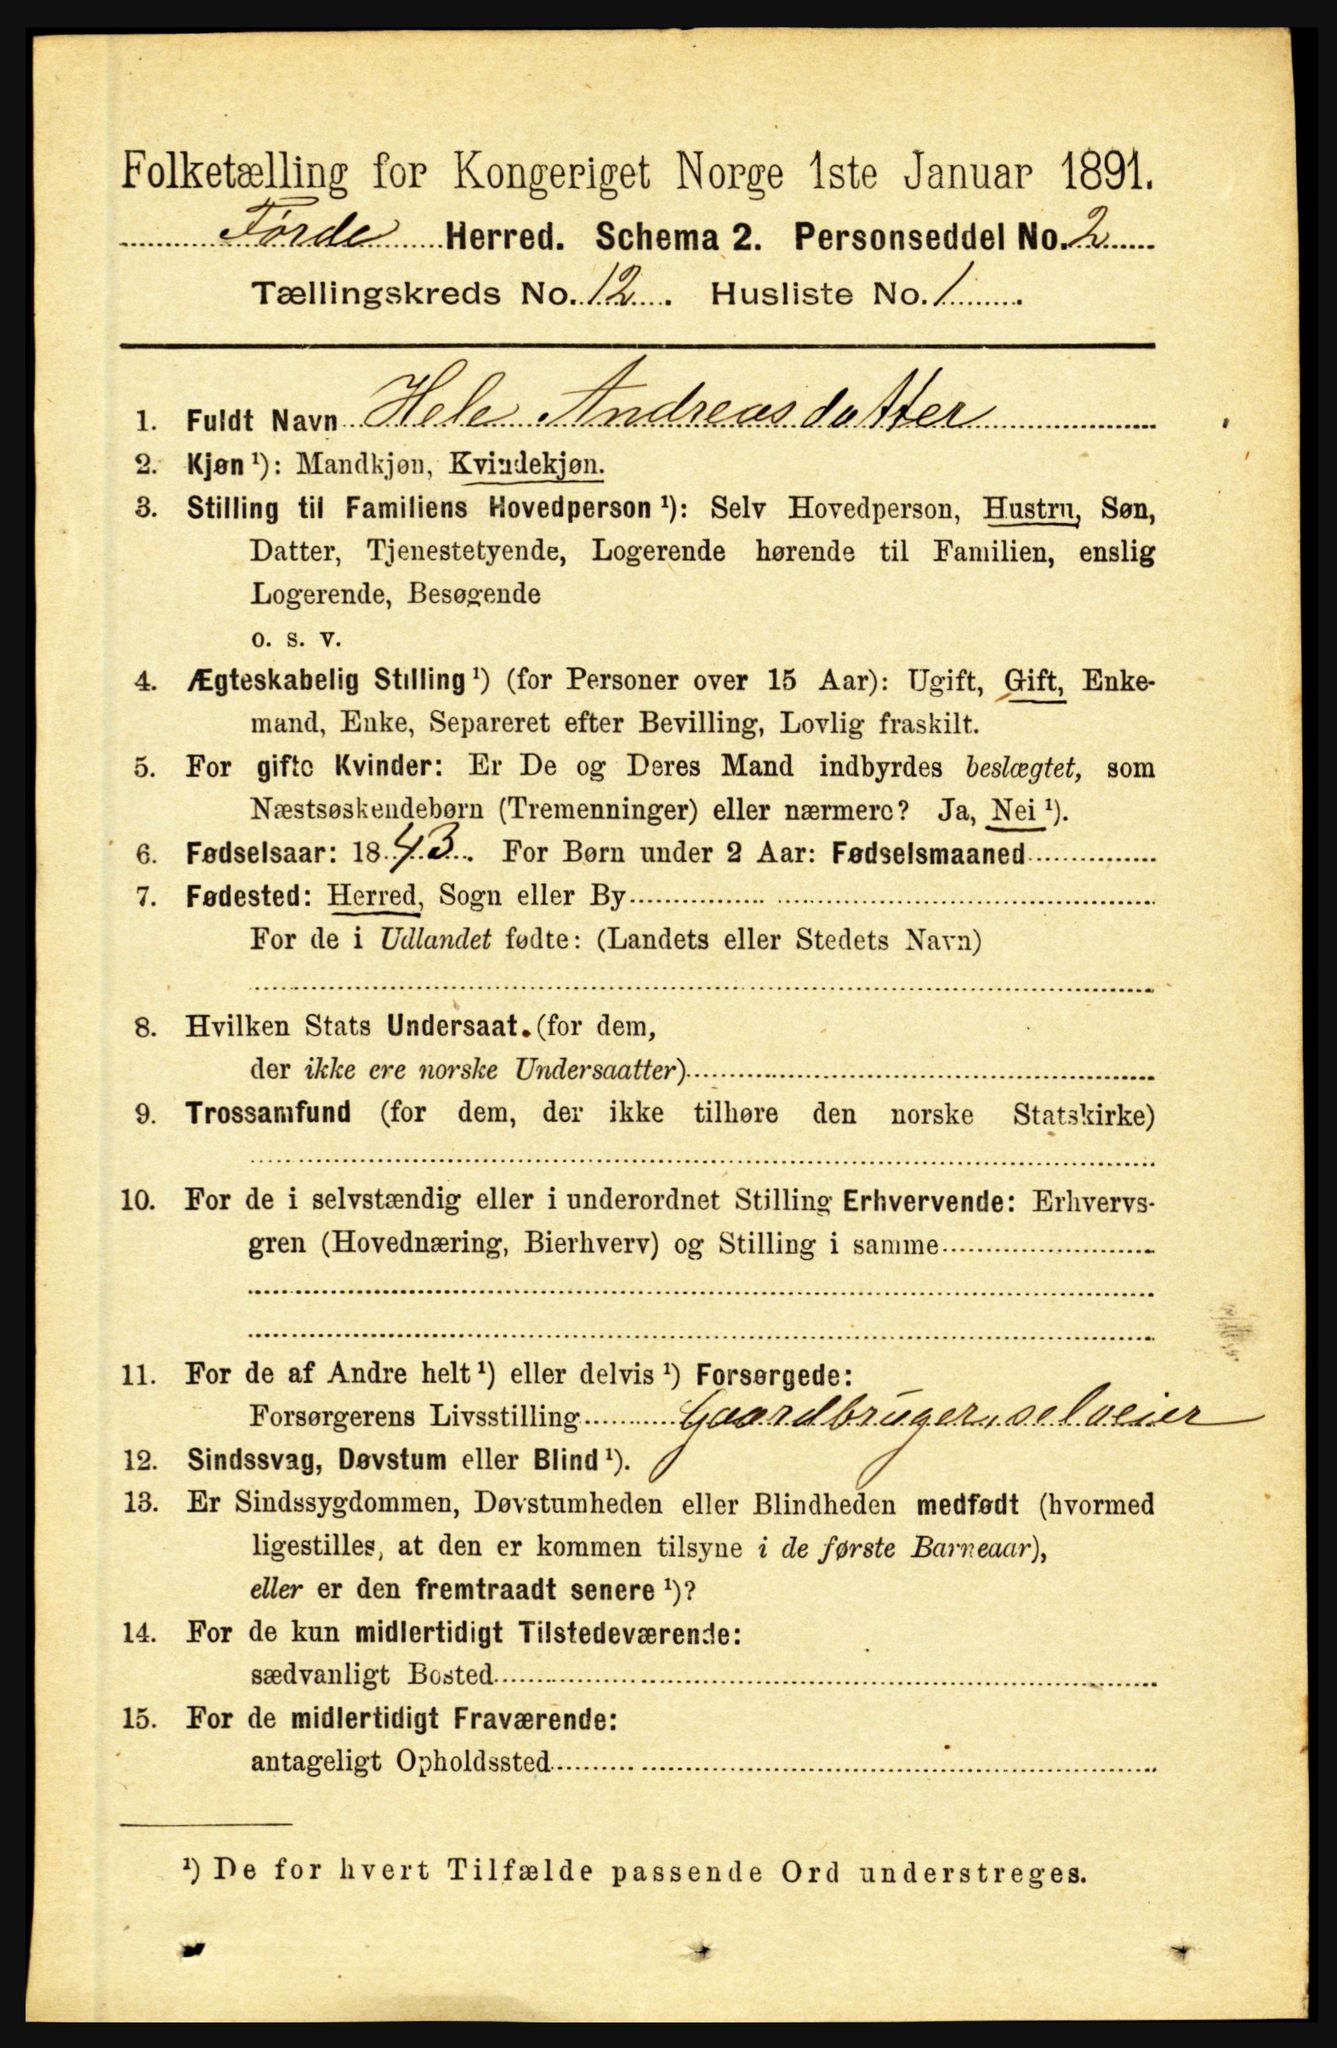 Folketælling for Kongeriget Norge 1ste Januar 1891.
Førde Herred. Schema 2. Personseddel No. 2
Tællingskreds No. 12. Husliste No. 1.
1. Fuldt Navn Hele Andreasdatter
2. Kjøn ¹): Mandkjøn, Kvindekjøn.
3. Stilling til Familiens Hovedperson ¹): Selv Hovedperson, Hustru, Søn,
Datter, Tjenestetyende, Logerende hørende til Familien, enslig
Logerende, Besøgende
o. s. v.
4. Ægteskabelig Stilling ¹) (for Personer over 15 Aar): Ugift, Gift, Enke-
mand, Enke, Separeret efter Bevilling, Lovlig fraskilt.
5. For gifte Kvinder: Er De og Deres Mand indbyrdes beslægtet, som
Næstsøskendebørn (Tremenninger) eller nærmere? Ja, Nei ¹).
6. Fødselsaar: 1843. For Børn under 2 Aar: Fødselsmaaned
7. Fødested: Herred, Sogn eller By
For de i Udlandet fødte: (Landets eller Stedets Navn)
8. Hvilken Stats Undersaat. (for dem,
der ikke ere norske Undersaatter)
9. Trossamfund (for dem, der ikke tilhøre den norske Statskirke)
10. For de i selvstændig eller i underordnet Stilling Erhvervende: Erhvervs-
gren (Hovednæring, Bierhverv) og Stilling i samme
11. For de af Andre helt ¹) eller delvis ¹) Forsørgede:
Forsørgerens Livsstilling Gaardbruger, selveier
12. Sindssvag, Døvstum eller Blind ¹).
13. Er Sindssygdommen, Døvstumheden eller Blindheden medfødt (hvormed
ligestilles, at den er kommen tilsyne i de første Barneaar),
eller er den fremtraadt senere ¹)?
14. For de kun midlertidigt Tilstedeværende:
sædvanligt Bosted
15. For de midlertidigt Fraværende:
antageligt Opholdssted
¹) De for hvert Tilfælde passende Ord understreges.